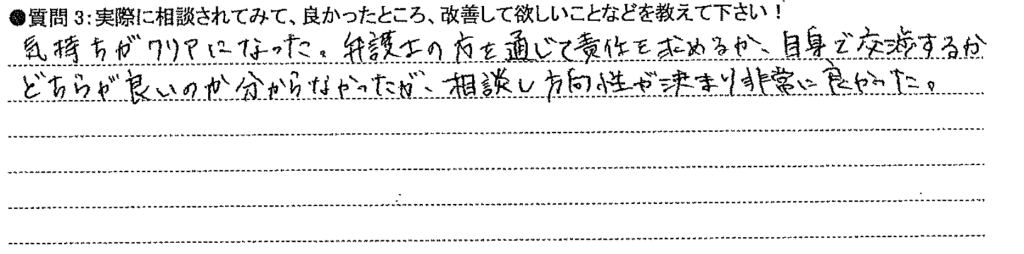 ●質問3:実際に相談されてみて、良かったところ、改善して欲しいことなどを教えて下さい!
気持ちがクリアになった。弁護士の方を通じて責任を求めるか、自身で交渉するか
どちらが良いのか分からなかったが、相談し方向性が決まり非常に良かった。